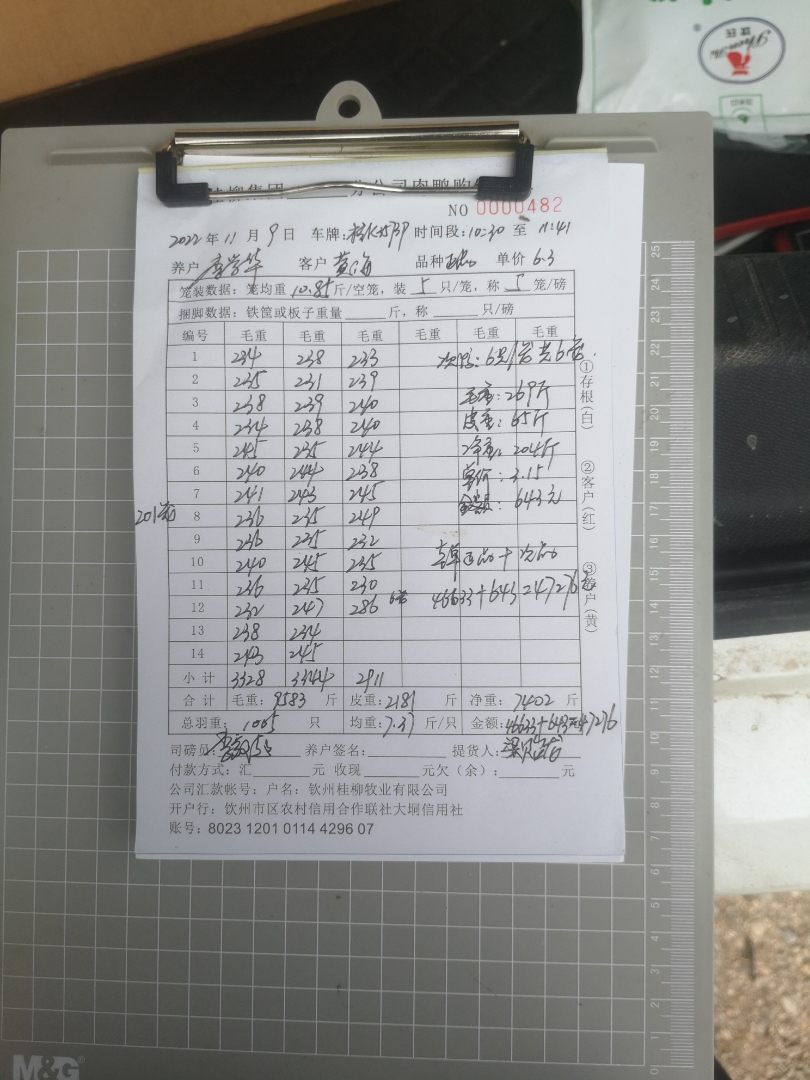 桂柳集团 分公司肉鸭购
NO 0000482
2022年11月9日 车牌: 时间段:10:30至11:41
养户 客户黄海 品种 单价6.3
笼装数据:笼均重10.85斤/空笼,装5只/笼,称5笼/磅
捆脚数据:铁筐或板子重量 斤,称 只/磅
编号 毛重 毛重 毛重 毛重 毛重 毛重
1 234 238 233 次鸭:6只/笼共6笼.
2 235 231 239
3 238 239 240 毛重:269斤
4 234 238 240 皮重:65斤
5 245 235 244 净重:204斤
6 240 244 238 单价:3.15
7 241 243 245 金额:643元
201笼 8 236 235 249
9 236 235 232
10 240 245 235 正品+次品
11 236 235 230
12 232 247 286 6笼 46633+643=47276元
13 238 234
14 243 245
小计 3328 3344 2911
合计 毛重:9583斤 皮重:2181斤 净重:7402斤
总羽重:1005只 均重:7.37斤/只 金额:46633+643=47276
司磅员: 养户签名: 提货人:
付款方式:汇 元 收现 元欠(余): 元
公司汇款帐号:户名:钦州桂柳牧业有限公司
开户行:钦州市区农村信用合作联社大垌信用社
账号:8023 1201 0114 4296 07
①存根(白)
②客户(红)
③养户(黄)
M&G